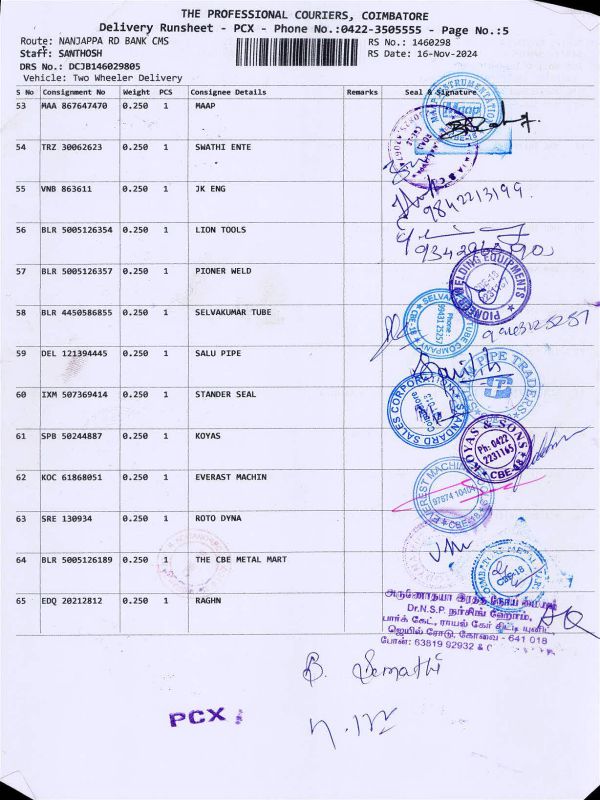 THE PROFESSIONAL COURIERS, COIMBATORE
Delivery Runsheet - PCX - Phone No.:0422-3505555 - Page No.:5
Route: NANJAPPA RD BANK CMS RS No.: 1460298
Staff: SANTHOSH RS Date: 16-Nov-2024
DRS No.: DCJB146029805
Vehicle: Two Wheeler Delivery
S No Consignment No Weight PCS Consignee Details Remarks Seal & Signature
53 MAA 867647470 0.250 1 MAAP
54 TRZ 30062623 0.250 1 SWATHI ENTE
55 VNB 863611 0.250 1 JK ENG
9842213199
56 BLR 5005126354 0.250 1 LION TOOLS
57 BLR 5005126357 0.250 1 PIONER WELD
PIONEER WELDING EQUIPMENTS
58 BLR 4450586855 0.250 1 SELVAKUMAR TUBE
SELVA TUBE COMPANY CBE-18
Phone 99431 25257
9943125257
59 DEL 121394445 0.250 1 SALU PIPE
PIPE TRADERS
60 IXM 507369414 0.250 1 STANDER SEAL
STANDARD SALES CORPORATION
61 SPB 50244887 0.250 1 KOYAS
KOYAS & SONS CBE-18
Ph: 0422 2231165
62 KOC 61868051 0.250 1 EVERAST MACHIN
EVEREST MACHIN CBE-18
97874 10404
63 SRE 130934 0.250 1 ROTO DYNA
64 BLR 5005126189 0.250 1 THE CBE METAL MART
CBE-18
65 EDQ 20212812 0.250 1 RAGHN
அருணோதயா இரத்த நோய்
Dr.N.S.P. நர்சிங் ஹோம்,
பார்க் கேட், ராயல் கேர் சிட்டி யூனிட்
ஜெயில் ரோடு, கோவை - 641 018
போன்: 63819 92932 &
B. Semathi
PCX